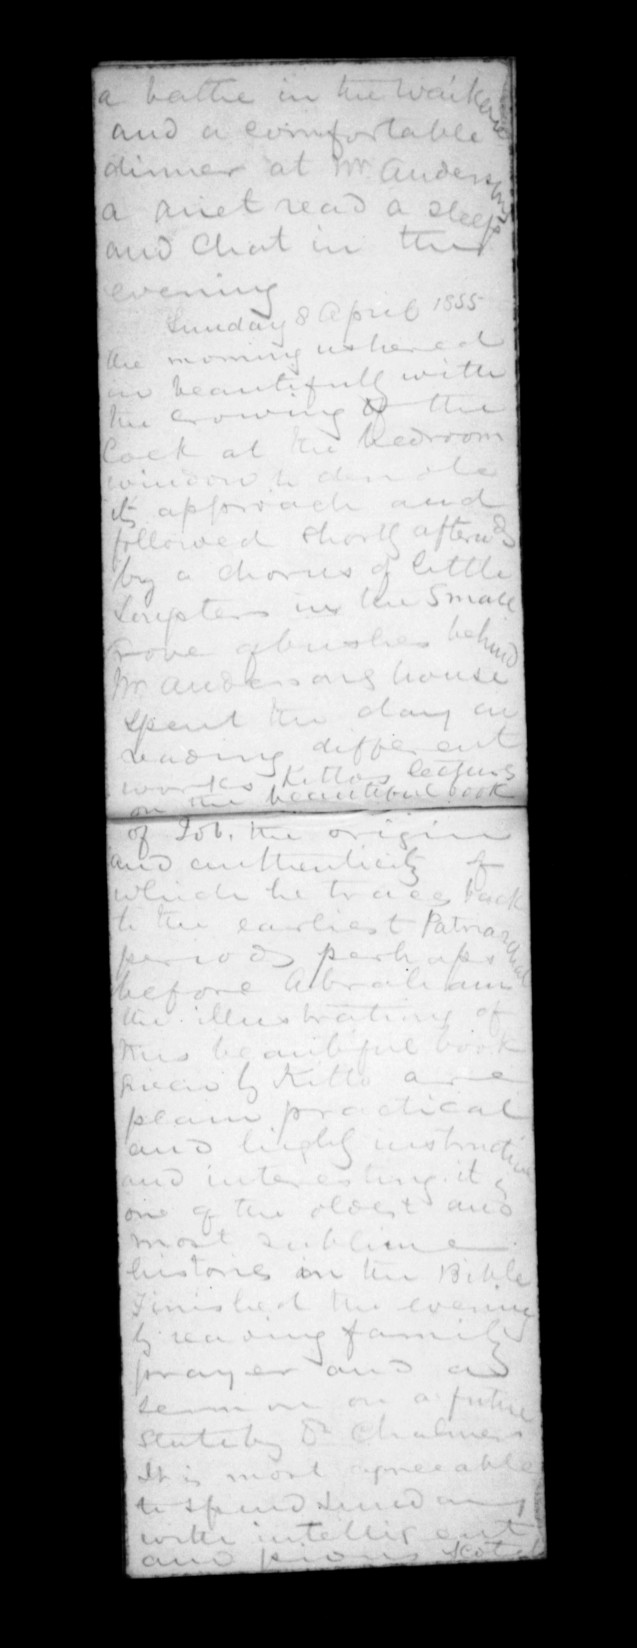 a bathe in the Waikeria
and a comfortable
dinner at Mr Andersons
a quiet read a sleep
and Chat in the
evening
Sunday 8 April 1855
the morning ushered
in beautifully with
the crowing of the
Cock at the bedroom
window to denote
its approach and
followed shortly afterwds
by a chorus of little
Songsters in the Small
Grove of bushes behind
Mr Andersons house
Spent the day in
reading different
works Kittos lectures
on the beautiful book
of Job. the origin
and authenticity of
which he traces back
to the earliest Patriarchal
periods perhaps
before Abraham
the illustrations of
this beautiful book
given by Kitto are
plain practical
and highly instructive
and interesting. it is
one of the oldest and
most sublime
histories in the Bible
Finished the evening
by reading family
prayer and a
sermon on a future
state by Dr Chalmers
It is most agreeable
to spend Sunday
with intelligent
and pious Scotch